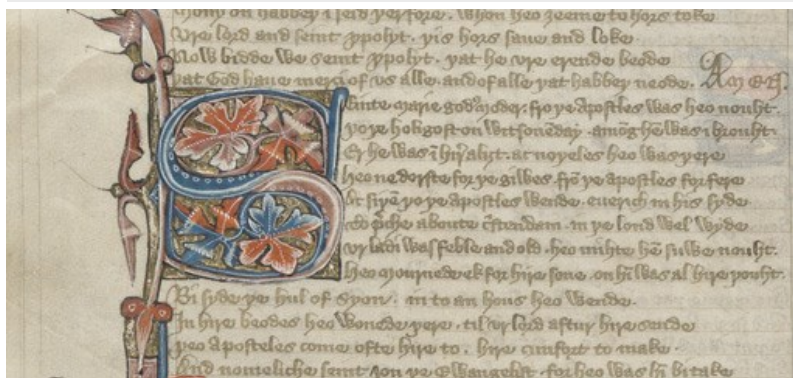 mony on habbeþ i leid þerfore. whon heo ȝeeme to hors toke
Vre lord and seint ypolyt. þis hors saue and loke
Now bidde we seint ypolyt. þat he vre erende beode
þat God haue merci of vs alle. and of alle þat habbeþ neode. Amen.
Seinte marie godus moder. fro þe Apostles was heo nouht.
þo þe holigost on Witsoneday. among hem was i brouht.
Er he was in hir aliht. at noþeles heo was þere
heo ne dorste for þe giwes. from þe apostles for fere
At siþen þo þe apostles wende. euerich in his syde
to preche aboute cristendam. in þe lond wel wyde
vr ladi was feble and old. heo mihte hem suwe nouht.
Heo mournede ek for hire sone. on him was al hire þouht.
Bi syde þe hul of syon. in to an hous heo wende.
In hire beodes heo wonede þere. til vr lord aftur hire sende
þeo aposteles come ofte hire to. hire cumfort to make
And nomeliche seint Jon þe Ewangelist. for heo was him bi take